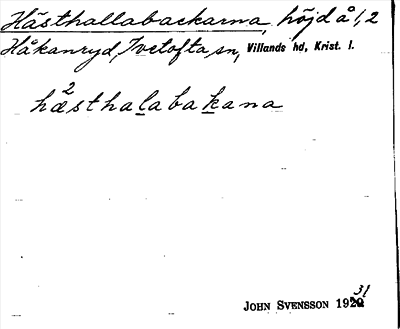 Hästhallabackarna, höjd å 1,2
Håkanryd, Ivetofta sn, Villands hd, Krist. l.
2
hæsthalabakana
31
JOHN SVENSSON 1920